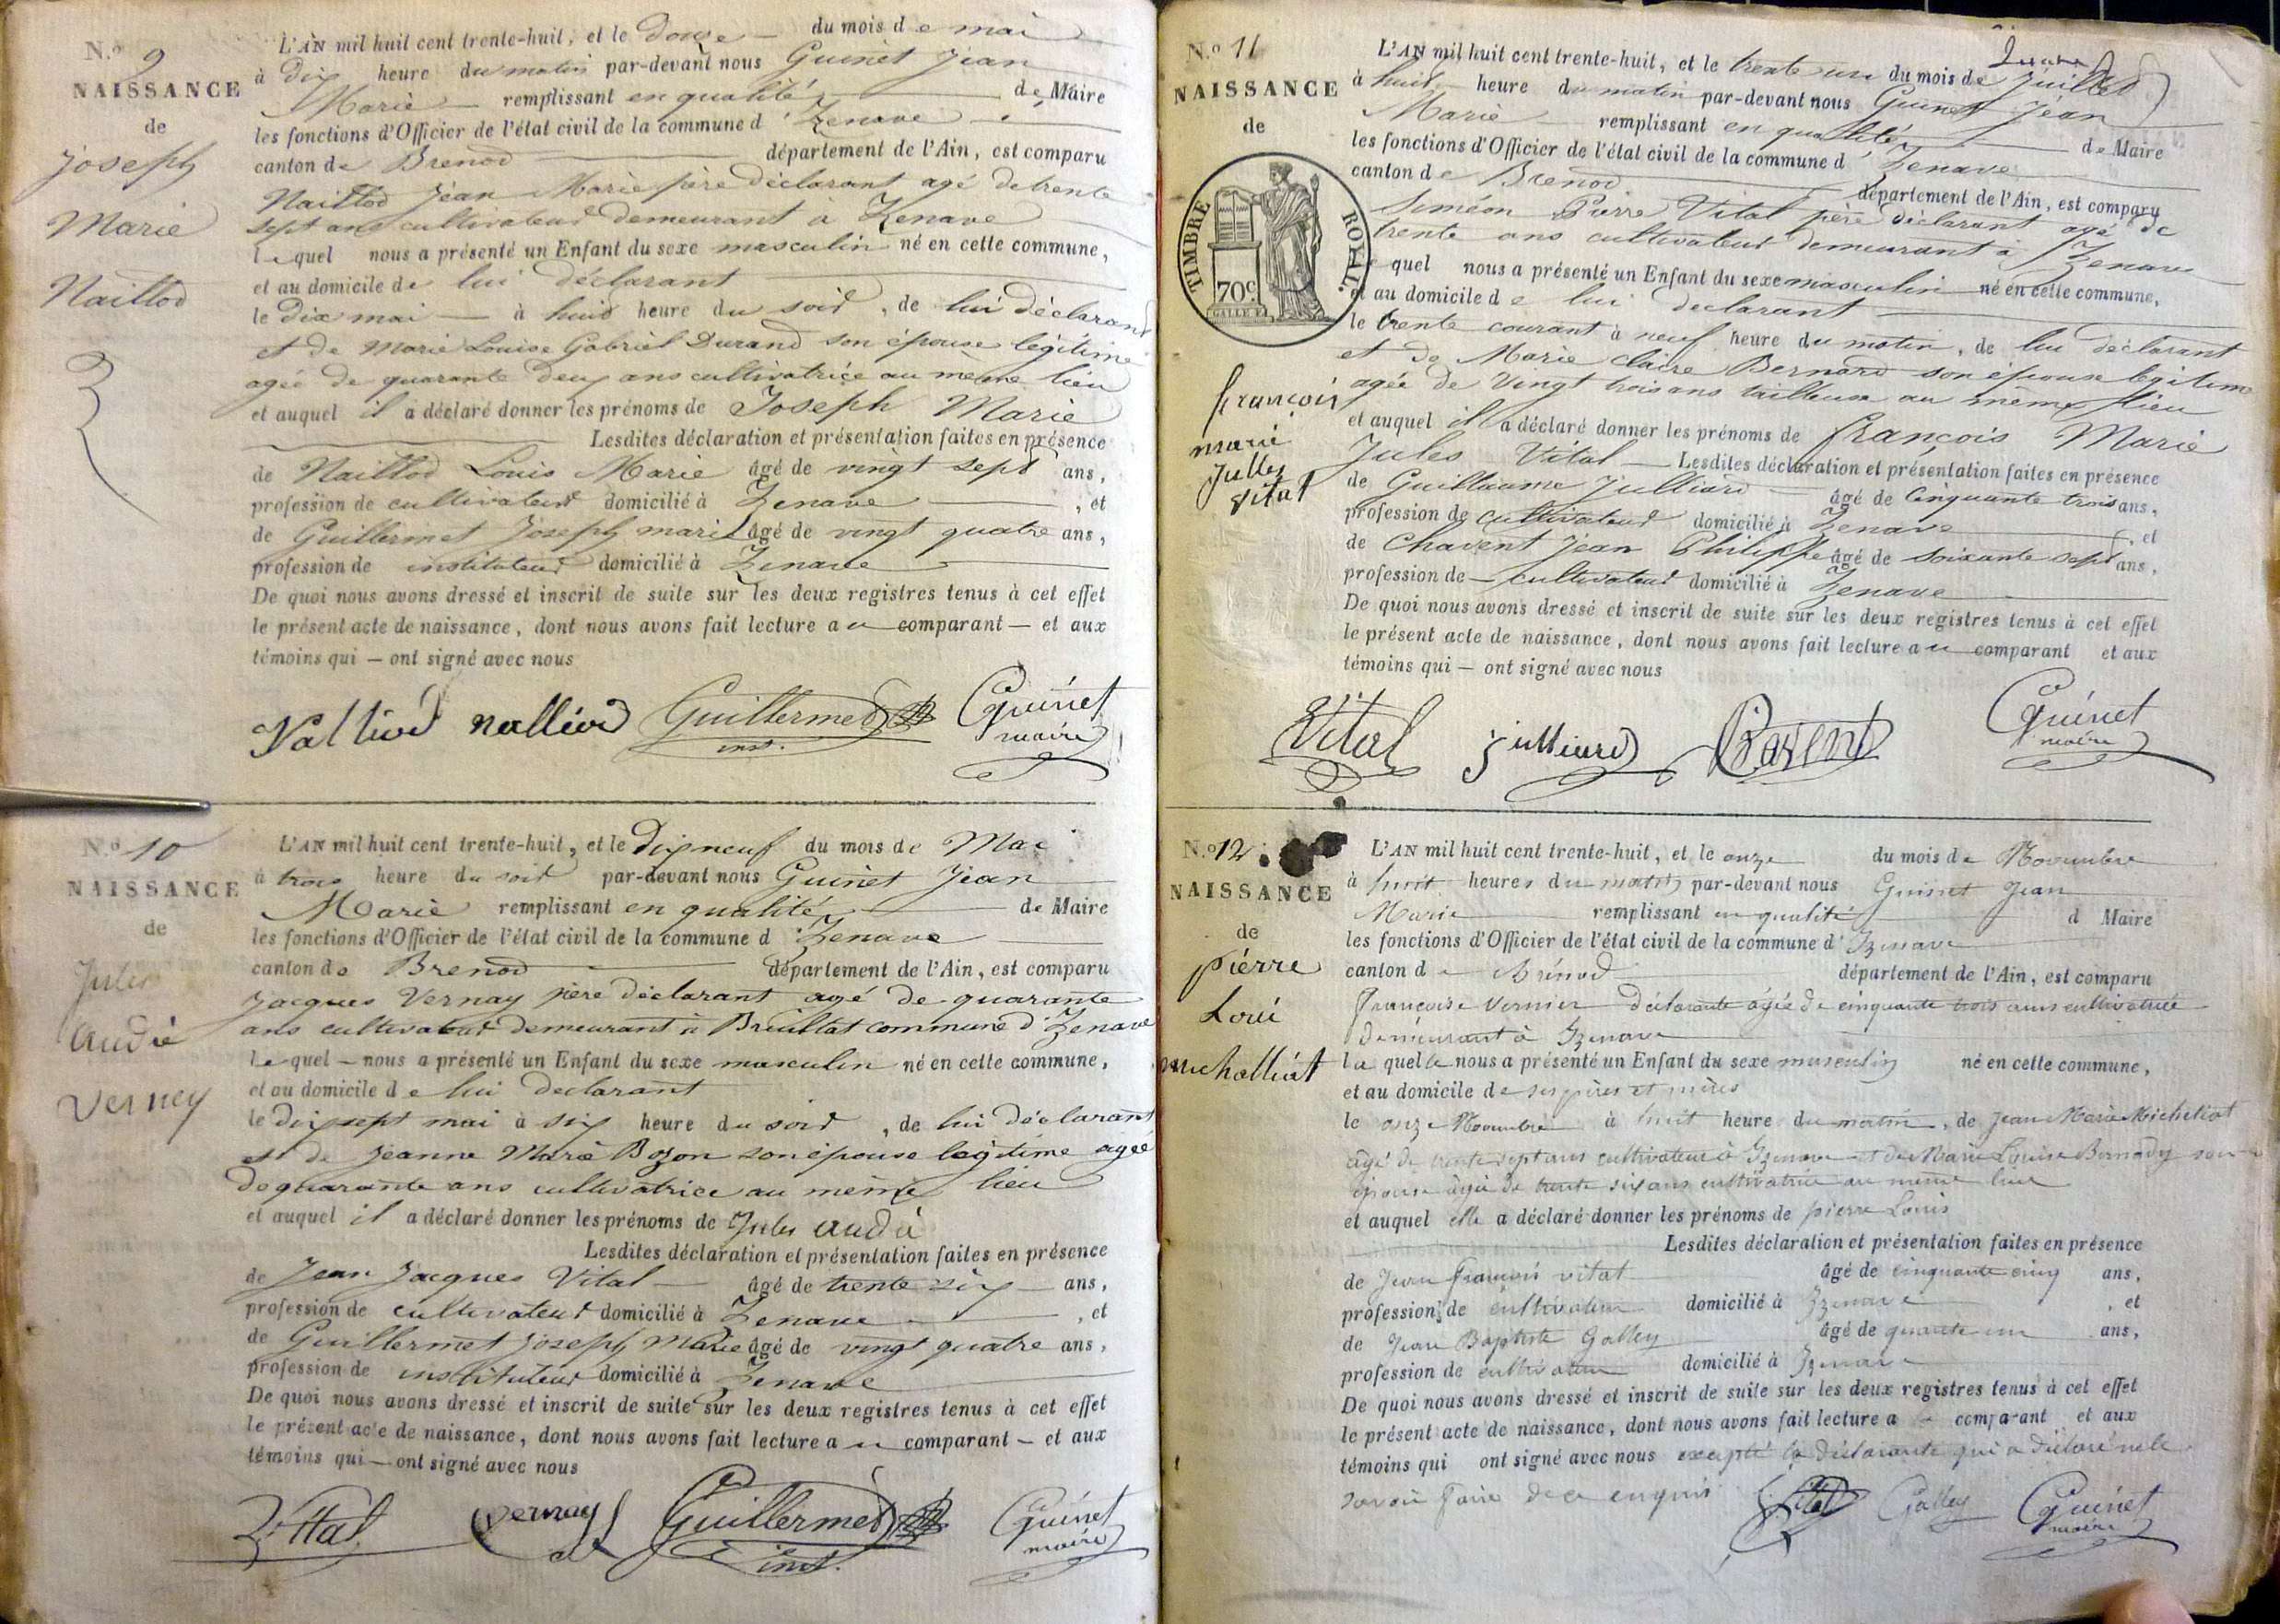 N.º 9
NAISSANCE
de
joseph
Marie
Naillod
L'AN mil huit cent trente-huit, et le douze du mois de mai
à dix heure du matin par-devant nous Guinet Jean
Marie remplissant en qualité de Maire
les fonctions d'Officier de l'état civil de la commune d'Izenave
canton de Brenod département de l'Ain, est comparu
Naillod Jean Marie père déclarant agé de trente
sept ans cultivateur demeurant à Izenave
lequel nous a présenté un Enfant du sexe masculin né en cette commune,
et au domicile de lui déclarant
le dix mai à huit heure du soir, de lui déclarant
et de Marie Louise Gabriel Durand son épouse légitime
agée de quarante deux ans cultivatrice au même lieu
et auquel il a déclaré donner les prénoms de Joseph Marie
Lesdites déclaration et présentation faites en présence
de Naillod Louis Marie âgé de vingt sept ans,
profession de cultivateur domicilié à Izenave, et
de Guillermet Joseph marie âgé de vingt quatre ans,
profession de instituteur domicilié à Izenave
De quoi nous avons dressé et inscrit de suite sur les deux registres tenus à cet effet
le présent acte de naissance, dont nous avons fait lecture au comparant et aux
témoins qui ont signé avec nous
Nalliod nalliod Guillermet inst. Guinet maire
N.º 10
NAISSANCE
de
Jules
Audé
Verney
L'AN mil huit cent trente-huit, et le Dix neuf du mois de Mai
à trois heure du soir par-devant nous Guinet Jean
Marie remplissant en qualité de Maire
les fonctions d'Officier de l'état civil de la commune d'Izenave
canton de Brenod département de l'Ain, est comparu
Jacques Vernay père déclarant agé de quarante
ans cultivateur demeurant à Breuillat commune d'Izenave
Lequel nous a présenté un Enfant du sexe masculin né en cette commune,
et au domicile de lui declarant
le dix sept mai à six heure du soir, de lui déclarant
et de Jeanne Marie Bozon son épouse légitime agée
de quarante ans cultivatrice au même lieu
et auquel il a déclaré donner les prénoms de Jules Audé
Lesdites déclaration et présentation faites en présence
de Jean Jacques Vital âgé de trente six ans,
profession de cultivateur domicilié à Izenave, et
de Guillermet Joseph Marie âgé de vingt quatre ans,
profession de instituteur domicilié à Izenave
De quoi nous avons dressé et inscrit de suite sur les deux registres tenus à cet effet
le présent acte de naissance, dont nous avons fait lecture au comparant et aux
témoins qui ont signé avec nous
Vittal Vernay Guillermet inst. Guinet maire
N.º 11
NAISSANCE
de
TIMBRE ROYAL.
70c.
françois
marie
Julles
vital
L'AN mil huit cent trente-huit, et le trente un du mois de Juillet
à huit heure du matin par-devant nous Guinet Jean
Marie remplissant en qualité de Maire
les fonctions d'Officier de l'état civil de la commune d'Izenave
canton de Brenod département de l'Ain, est comparu
Siméon Pierre Vital père déclarant agé de
trente ans cultivateur demeurant à Izenave
quel nous a présenté un Enfant du sexe masculin né en cette commune,
et au domicile de lui declarant
le trente courant à neuf heure du matin, de lui déclarant
et de Marie Claire Bernard son épouse légitime
agée de Vingt trois ans tailleuse au même lieu
et auquel il a déclaré donner les prénoms de François Marie
Jules Vital Lesdites déclaration et présentation faites en présence
de Guillaume Julliard âgé de Cinquante trois ans,
profession de cultivateur domicilié à Izenave, et
de Chavent Jean Philippe âgé de soixante sept ans,
profession de cultivateur domicilié à Izenave
De quoi nous avons dressé et inscrit de suite sur les deux registres tenus à cet effet
le présent acte de naissance, dont nous avons fait lecture au comparant et aux
témoins qui ont signé avec nous
Vital julliard Guinet maire
N.º 12
NAISSANCE
de
pierre
Loui
michalliat
L'AN mil huit cent trente-huit, et le onze du mois de Novembre
à huit heures du matin par-devant nous Guinet Jean
Marie remplissant en qualité d Maire
les fonctions d'Officier de l'état civil de la commune d'Izenave
canton de Brénod département de l'Ain, est comparu
Françoise Vernier déclarante âgée de cinquante trois ans cultivatrice
demeurant à Izenave
laquelle nous a présenté un Enfant du sexe masculin né en cette commune,
et au domicile de ses pères et mères
le onze Novembre à huit heure du matin, de Jean Marie Michelliat
âgé de trente sept ans cultivateur à Izenave et de Marie Louise Bernady son
épouse âgée de trente six ans cultivatrice au même lieu
et auquel elle a déclaré donner les prénoms de pierre Louis
Lesdites déclaration et présentation faites en présence
de Jean françois vital âgé de cinquante cinq ans,
profession de cultivateur domicilié à Izenave, et
de Jean Baptiste Galley âgé de quarante un ans,
profession de cultivateur domicilié à Izenave
De quoi nous avons dressé et inscrit de suite sur les deux registres tenus à cet effet
le présent acte de naissance, dont nous avons fait lecture a la comparant et aux
témoins qui ont signé avec nous excepté la déclarante qui a déclaré ne le
savoir faire de ce enquis
Vital Galley Guinet maire